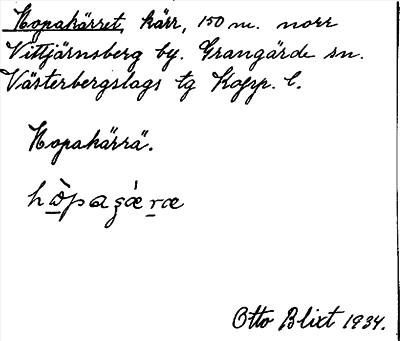 Hopakärret, kärr, 150 m. norr
Vittjärnsberg by. Grangärde sn.
Västerbergslags tg Kopp. l.
Hopakärrä.
Otto Blixt 1934.